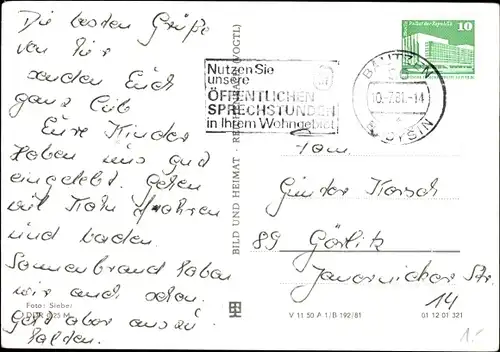 Die besten Grüße
von hier
senden Euch
ganz lieb
Eure Kinder
Haben uns gut
eingelebt. Gehen
mit Kahn fahren
und baden.
Sonnenbrand haben
wir auch schon.
Geht aber auszu-
halden.
Foto: Sieber
DDR 0,25 M
BILD UND HEIMAT · REICHENBACH (VOGTL)
Nutzen Sie
unsere
ÖFFENTLICHEN
SPRECHSTUNDEN
in Ihrem Wohngebiet
BAUTZEN
10.-7.81.-14
BUDYŠIN
Palast der Republik
10
Fam.
Günter Korsch
89 Görlitz
Jauernicker Str.
14
V 11 50 A 1/B 192/81
01 12 01 321
1.-